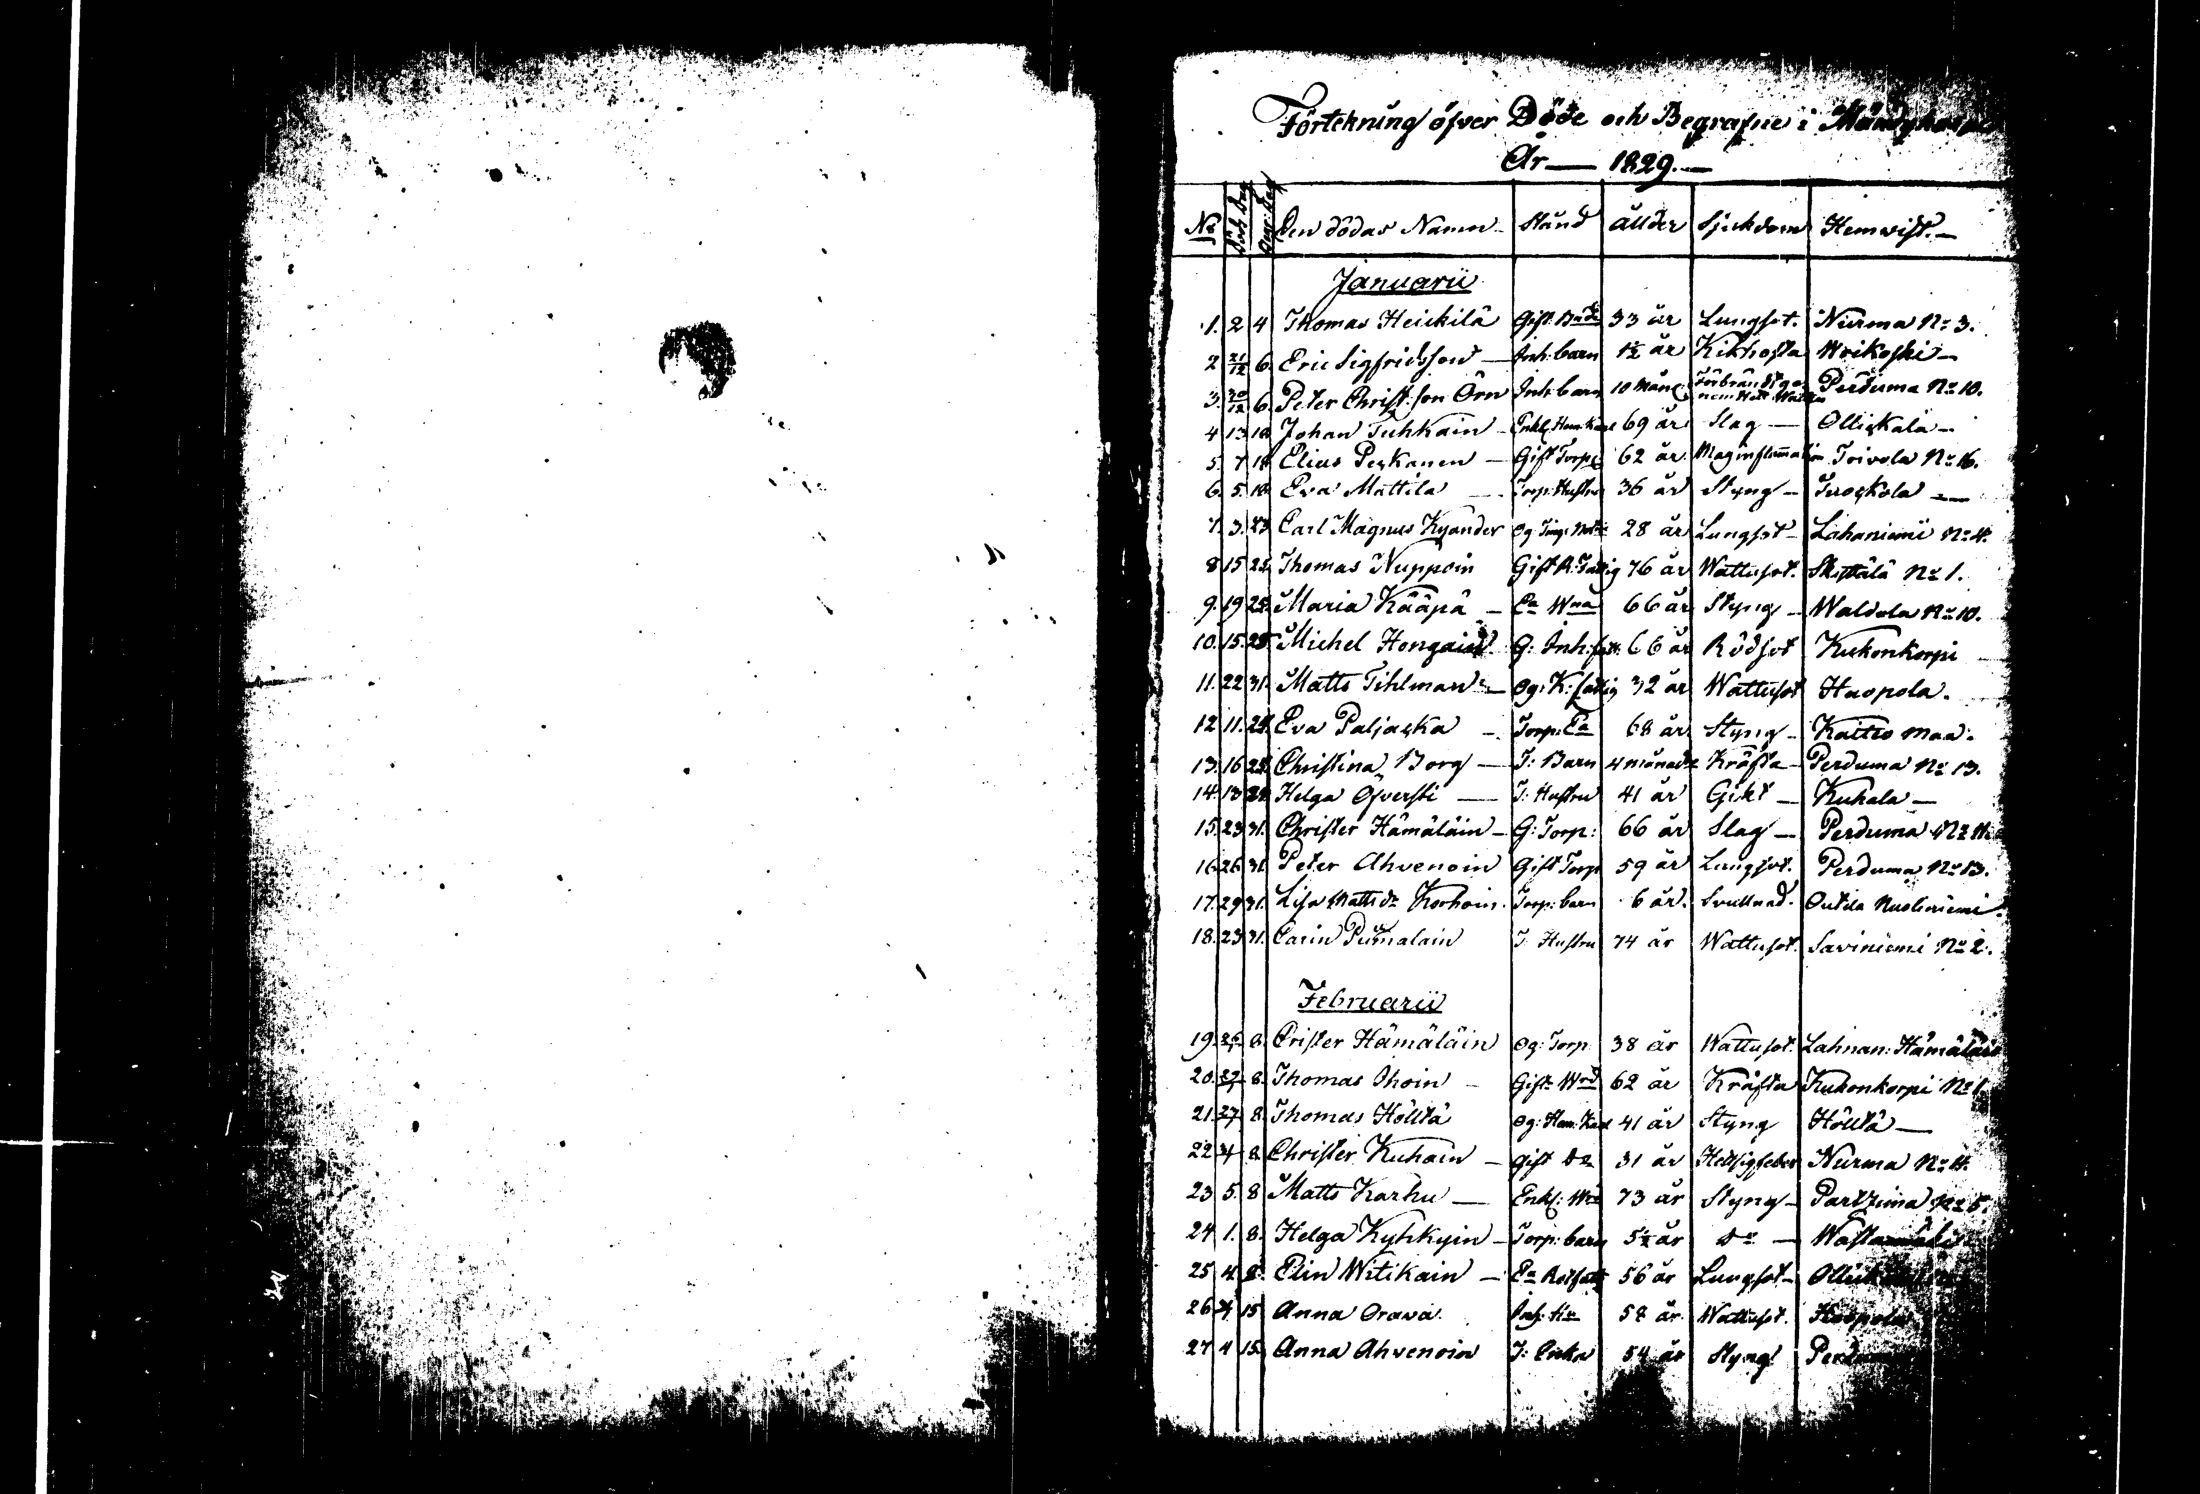 Förtekning öfver Döde och Begrafne i
År — 1829. —
No Död: Dag Begr: dag Den dödas Namn Stånd Ållder Sjukdom Hemvist. —
Januarii
1. 2 4 Thomas Heickilä Gift Bde 33 år Lungsot. Nurma No 3.
2 21/12 6. Eric Sigfridsson — Inh: barn 1½ år Kikhosta Wrikoski —
3. 30/12 6. Peter Christ: son Örn Inh: barn 10 Mån: Förbränd ge nom Hett Watten Perduma No 10.
4 13 18 Johan Tuhkain — Enkl. Hem: Karl 69 år Slag — Olliskala —
5. 7 18 Elias Peskanen — Gift Torp: 62 år Maginflammation Toivola No 16.
6. 5. 18 Eva Mattila — Torp: Hustru 36 år Styng —
7. 3. 23 Carl Magnus Kyander Og: 28 år Lungsot — Lahaniemi No 4.
8 15 25 Thomas Nuppoin Gift R. Fattig 76 år Wattusot. Skyttälä No 1.
9. 19 25. Maria Kääpä — Ea Wna 66 år Styng — Waldola No 10.
10. 15. 25. Michel Hongain G: Inh: 66 år Rödsot Kukonkorpi
11. 22 31. Matts Tihlman — Og: K: fattig 32 år Wattusot Haopola.
12 11. 25. Eva Paljacka — Torp: Ea 68 år Styng — Kaitto maa.
13. 16 25. Christina Borg — T: Barn 4 månader Kräfta — Perduma No 13.
14. 13 25. Helga Öfversti — T: Hustru 41 år Gikt — Kukala —
15. 23 31. Christer Hämäläin — G: Torp: 66 år Slag — Perduma No 11.
16. 26 31 Peter Ahvenoin Gift Torp 59 år Lungsot. Perduma No 13.
17. 29 31. Lisa Matts dr Korhoin. Torp: barn 6 år. Svullnad.
18. 23 31. Carin Pumalain T: Hustru 74 år Wattusot. Saviniemi No 2.
Februarii
19. 8. Crister Hämäläin Og: Torp 38 år Wattusot. Lahnan: Hämäläin
20. 27 8. Thomas Ihoin — Gift Wrd 62 år Kräfta Kukonkorpi No 1
21. 27 8. Thomas Hölltä Og: Hem: Karl 41 år Styng Hölltä —
22 31 8. Christer Kuhain — Gift Do 31 år Hetsigfeber Nurma No 4.
23 5. 8 Matts Karhu — Enkl: 73 år Styng — Partzima No 5.
24 1. 8. Helga Kyhkyin — Torp: barn 5½ år Do —
25 4. 8. Elin Witikain — Ea Rotfatt: 56 år Lungsot —
26 15 Anna Orava. Inh: 58 år Wattusot. Haopola
27 4 15. Anna Ahvenoin T: Enka 54 år Styng